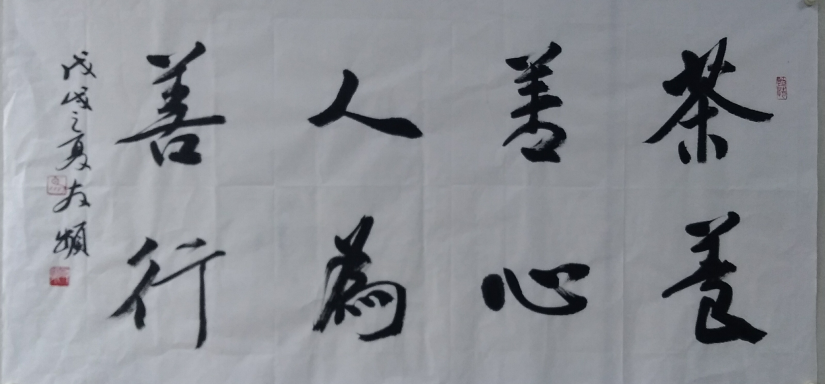 茶養
善心
人為
善行
戊戌之夏友頻